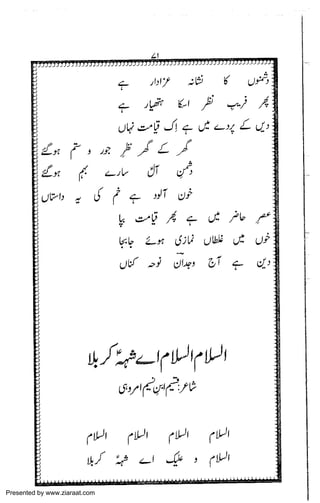 ۷۱
دشمنوں کا نشانہ عزادار ہے
پھر فریب نظر اسکا ہتھیار ہے
دیں کے پردے میں ہے اِک قیامت نہاں
گھر کے گھر نظرِ جور و ستم ہوگئے
دشمنِ آلؑ سارے بہم ہوگئے
خون آلود ہے خم کی یہ داستاں
عصرِ حاضر میں ہے پھر قیامت بپا
خوں میں غلطاں نمازی ہوئے جابجا
دین ہے آج وجدان نوحہ کناں
السلام السلام اے شہہؑ کربلا
شاعر: قسیم ابنِ نسیم امروہی
السلام السلام السلام السلام
السلام و علیک اے شہہؑ کربلا
Presented by www.ziaraat.com